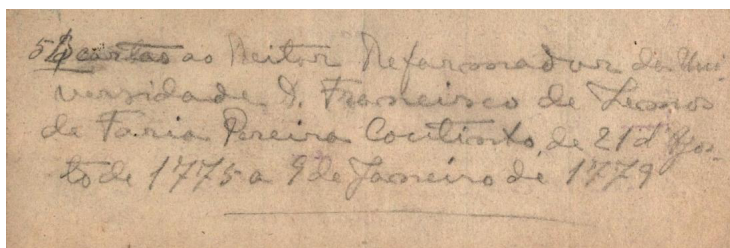 cartas ao Reitor Reformador da Uni-
versidade D. Francisco de Lemos
de Faria Pereira Coutinho, de 21 d'Agos-
to de 1775 a 9 de Janeiro de 1779